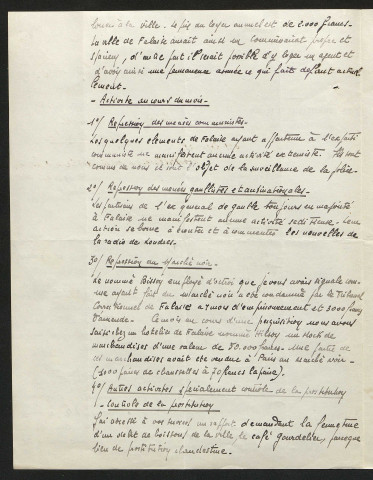 louer à la ville. Le prix du loyer annuel est de 2.000 francs.
La ville de Falaise aurait ainsi un commissariat propre et
spacieux, d'autre fait il serait possible d'y loger un agent et
d'avoir ainsi une permanence assurée ce qui fait défaut actuel
lement.
- Activité au cours du mois -
1°/ Répression des menées communistes.
Les quelques éléments de Falaise ayant appartenu à l'ex parti
communiste ne manifestent aucune activité extérieure. Ils sont
connus de nous et sont l'objet de la surveillance de la police.
2°/ Répression des menées gaullistes et antinationales.
Les partisans de l'ex général de Gaulle toujours en majorité
à Falaise ne manifestent aucune activité séditieuse. Leur
action se borne à écouter et à commenter les nouvelles de
la radio de Londres.
3°/ Répression du Marché noir.
Le nommé Bissoy employé d'octroi que je vous avais signalé com-
me ayant fait du marché noir a été condamné par le Tribunal
Correctionnel de Falaise à 4 mois d'emprisonnement et 3000 francs
d'amende. Ce mois au cours d'une perquisition nous avons
saisi chez un hôtelier de Falaise nommé un stock de
marchandises d'une valeur de 50.000 francs. Une partie de
ces marchandises avait été vendue à Paris au marché noir.
(1000 paires de chaussettes à 70 francs la paire).
4°/ Autres activités spécialement contrôle de la prostitution
1 - Contrôle de la prostitution
J'ai adressé à vos services un rapport demandant la fermeture
d'un débit de boissons de la ville, le café Gourdelier, presque
lieu de prostitution clandestine.